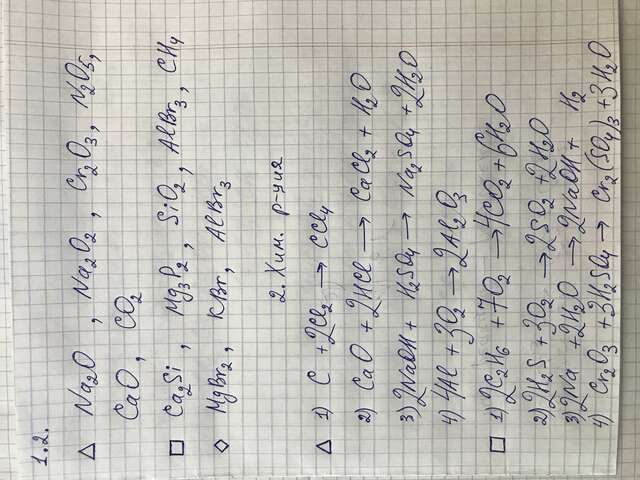 1.2.
△ Na₂O, Na₂O₂, Cr₂O₃, N₂O₅,
CaO, CO₂
□ Ca₂Si, Mg₃P₂, SiO₂, AlBr₃, CH₄
◇ MgBr₂, KBr, AlBr₃
2. Хим. р-ция
△ 1) C + 2Cl₂ → CCl₄
2) CaO + 2HCl → CaCl₂ + H₂O
3) 2NaOH + H₂SO₄ → Na₂SO₄ + 2H₂O
4) 4Al + 3O₂ → 2Al₂O₃
□ 1) 2C₂H₆ + 7O₂ → 4CO₂ + 6H₂O
2) 2H₂S + 3O₂ → 2SO₂ + 2H₂O
3) 2Na + 2H₂O → 2NaOH + H₂
4) Cr₂O₃ + 3H₂SO₄ → Cr₂(SO₄)₃ + 3H₂O